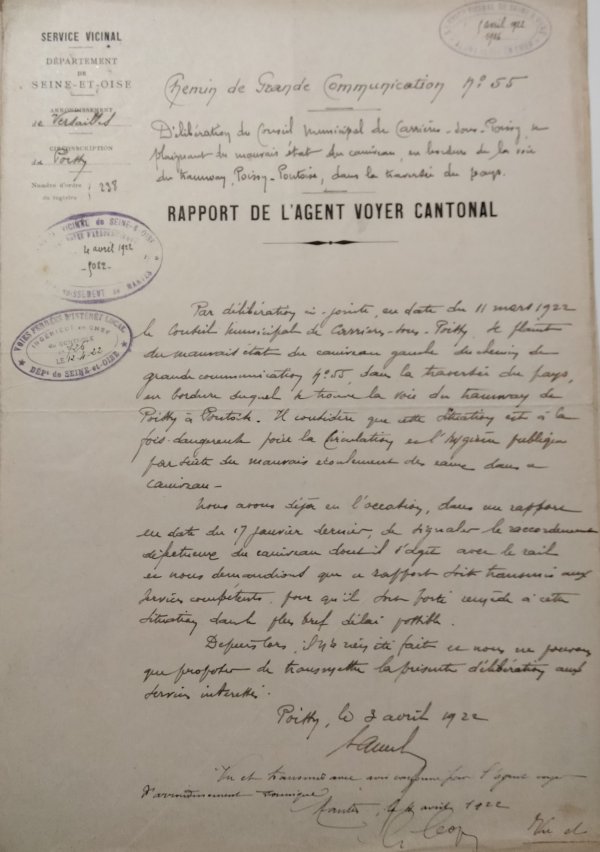 SERVICE VICINAL
DÉPARTEMENT
DE
SEINE-ET-OISE
ARRONDISSEMENT
de Versailles
CIRCONSCRIPTION
de Poissy
Numéro d'ordre
du registre
238
5 avril 1922
Chemin de Grande Communication N° 55
Délibération du Conseil Municipal de Carrières-sous-Poissy, se
plaignant du mauvais état du caniveau, en bordure de la voie
du tramway, Poissy-Pontoise, dans la traversée du pays.
RAPPORT DE L'AGENT VOYER CANTONAL
VICINAL de SEINE-&-OISE
4 avril 1922
ARRONDISSEMENT de MANTES
VOIES FERRÉES D'INTÉRÊT LOCAL
INGÉNIEUR en CHEF
DÉPt de SEINE-ET-OISE
Par délibération ci-jointe, en date du 11 mars 1922
le Conseil Municipal de Carrières-sous-Poissy, se plaint
du mauvais état du caniveau gauche du chemin de
grande communication N° 55 dans la traversée du pays,
en bordure duquel se trouve la voie du tramway de
Poissy à Pontoise. Il considère que cette situation est à la
fois dangereuse pour la circulation et l'hygiène publique
par suite du mauvais écoulement des eaux dans ce
caniveau-
Nous avons déjà eu l'occasion, dans un rapport
en date du 17 janvier dernier, de signaler le raccordement
défectueux du caniveau dont il s'agit avec le rail
et nous demandions que ce rapport soit transmis aux
services compétents, pour qu'il soit porté remède à cette
situation dans le plus bref délai possible.
Depuis lors, il n'a rien été fait et nous ne pouvons
que proposer de transmettre la présente délibération aux
services intéressés.
Poissy, le 3 avril 1922
Vu et transmis avec avis conforme par l'agent voyer
d'arrondissement soussigné
Mantes, le 4 avril 1922
Vu et